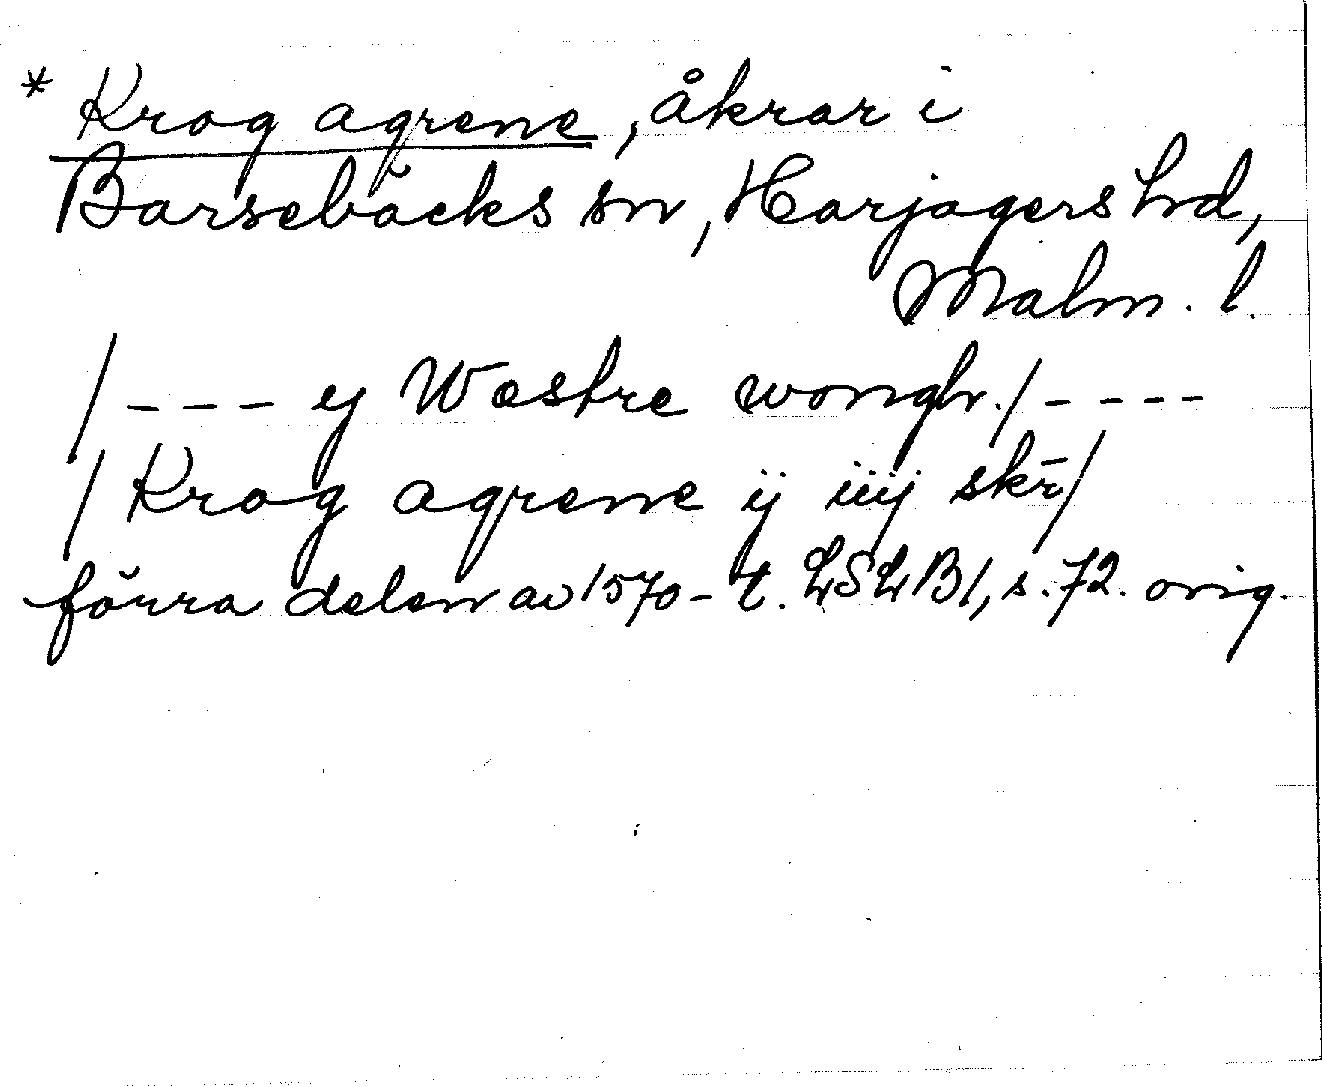 * Krog agrene, åkrar i
Barsebäcks sn, Harjagers hd,
Malm. l.
/--- ij Wæstre wongh./----
/Krog agrene ij iiij skr̄/
förra delen av 1570-t. LSLB1, s. 72. orig.